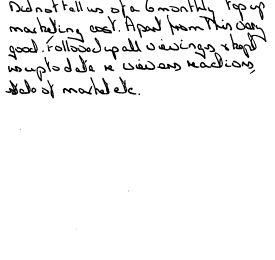 Did not tell us of a 6 monthly top up
marketing cost. Apart from this very
good. Followed up all viewings & kept
us up to date re viewers reactions,
state of market etc.